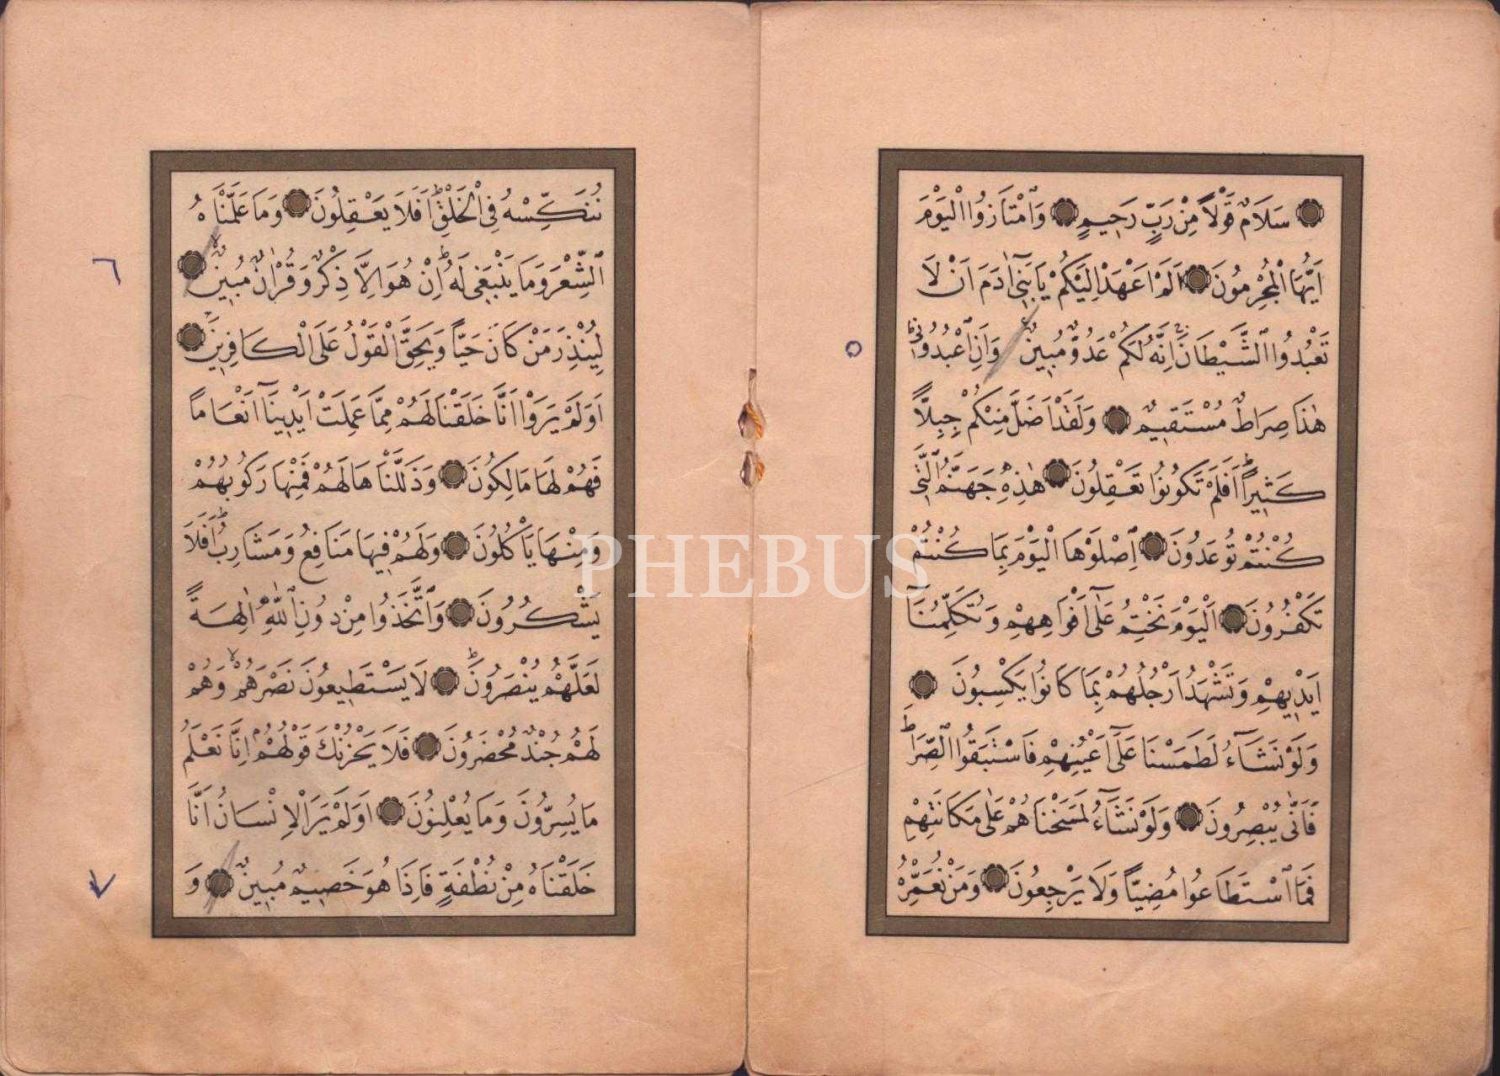 سَلَامٌ قَوْلًا مِنْ رَبٍّ رَحِيمٍ وَامْتَازُوا الْيَوْمَ
اَيُّهَا الْمُجْرِمُونَ اَلَمْ اَعْهَدْ اِلَيْكُمْ يَابَنِى اٰدَمَ اَنْ لَا
تَعْبُدُوا الشَّيْطَانَ اِنَّهُ لَكُمْ عَدُوٌّ مُبِينٌ وَاَنِ اعْبُدُونِى
هٰذَا صِرَاطٌ مُسْتَقِيمٌ وَلَقَدْ اَضَلَّ مِنْكُمْ جِبِلًّا
كَثِيرًا اَفَلَمْ تَكُونُوا تَعْقِلُونَ هٰذِهِ جَهَنَّمُ الَّتِى
كُنْتُمْ تُوعَدُونَ اِصْلَوْهَا الْيَوْمَ بِمَا كُنْتُمْ
تَكْفُرُونَ اَلْيَوْمَ نَخْتِمُ عَلٰٓى اَفْوَاهِهِمْ وَتُكَلِّمُنَآ
اَيْدِيهِمْ وَتَشْهَدُ اَرْجُلُهُمْ بِمَا كَانُوا يَكْسِبُونَ
وَلَوْ نَشَآءُ لَطَمَسْنَا عَلٰٓى اَعْيُنِهِمْ فَاسْتَبَقُوا الصِّرَاطَ
فَاَنّٰى يُبْصِرُونَ وَلَوْ نَشَآءُ لَمَسَخْنَاهُمْ عَلٰى مَكَانَتِهِمْ
فَمَا اسْتَطَاعُوا مُضِيًّا وَلَا يَرْجِعُونَ وَمَنْ نُعَمِّرْهُ
نُنَكِّسْهُ فِى الْخَلْقِ اَفَلَا يَعْقِلُونَ وَمَا عَلَّمْنَاهُ
الشِّعْرَ وَمَا يَنْبَغِى لَهُ اِنْ هُوَ اِلَّا ذِكْرٌ وَقُرْاٰنٌ مُبِينٌ
لِيُنْذِرَ مَنْ كَانَ حَيًّا وَيَحِقَّ الْقَوْلُ عَلَى الْكَافِرِينَ
اَوَلَمْ يَرَوْا اَنَّا خَلَقْنَا لَهُمْ مِمَّا عَمِلَتْ اَيْدِينَآ اَنْعَامًا
فَهُمْ لَهَا مَالِكُونَ وَذَلَّلْنَاهَا لَهُمْ فَمِنْهَا رَكُوبُهُمْ
وَمِنْهَا يَأْكُلُونَ وَلَهُمْ فِيهَا مَنَافِعُ وَمَشَارِبُ اَفَلَا
يَشْكُرُونَ وَاتَّخَذُوا مِنْ دُونِ اللّٰهِ اٰلِهَةً
لَعَلَّهُمْ يُنْصَرُونَ لَا يَسْتَطِيعُونَ نَصْرَهُمْ وَهُمْ
لَهُمْ جُنْدٌ مُحْضَرُونَ فَلَا يَحْزُنْكَ قَوْلُهُمْ اِنَّا نَعْلَمُ
مَا يُسِرُّونَ وَمَا يُعْلِنُونَ اَوَلَمْ يَرَ الْاِنْسَانُ اَنَّا
خَلَقْنَاهُ مِنْ نُطْفَةٍ فَاِذَا هُوَ خَصِيمٌ مُبِينٌ وَ
PHEBUS